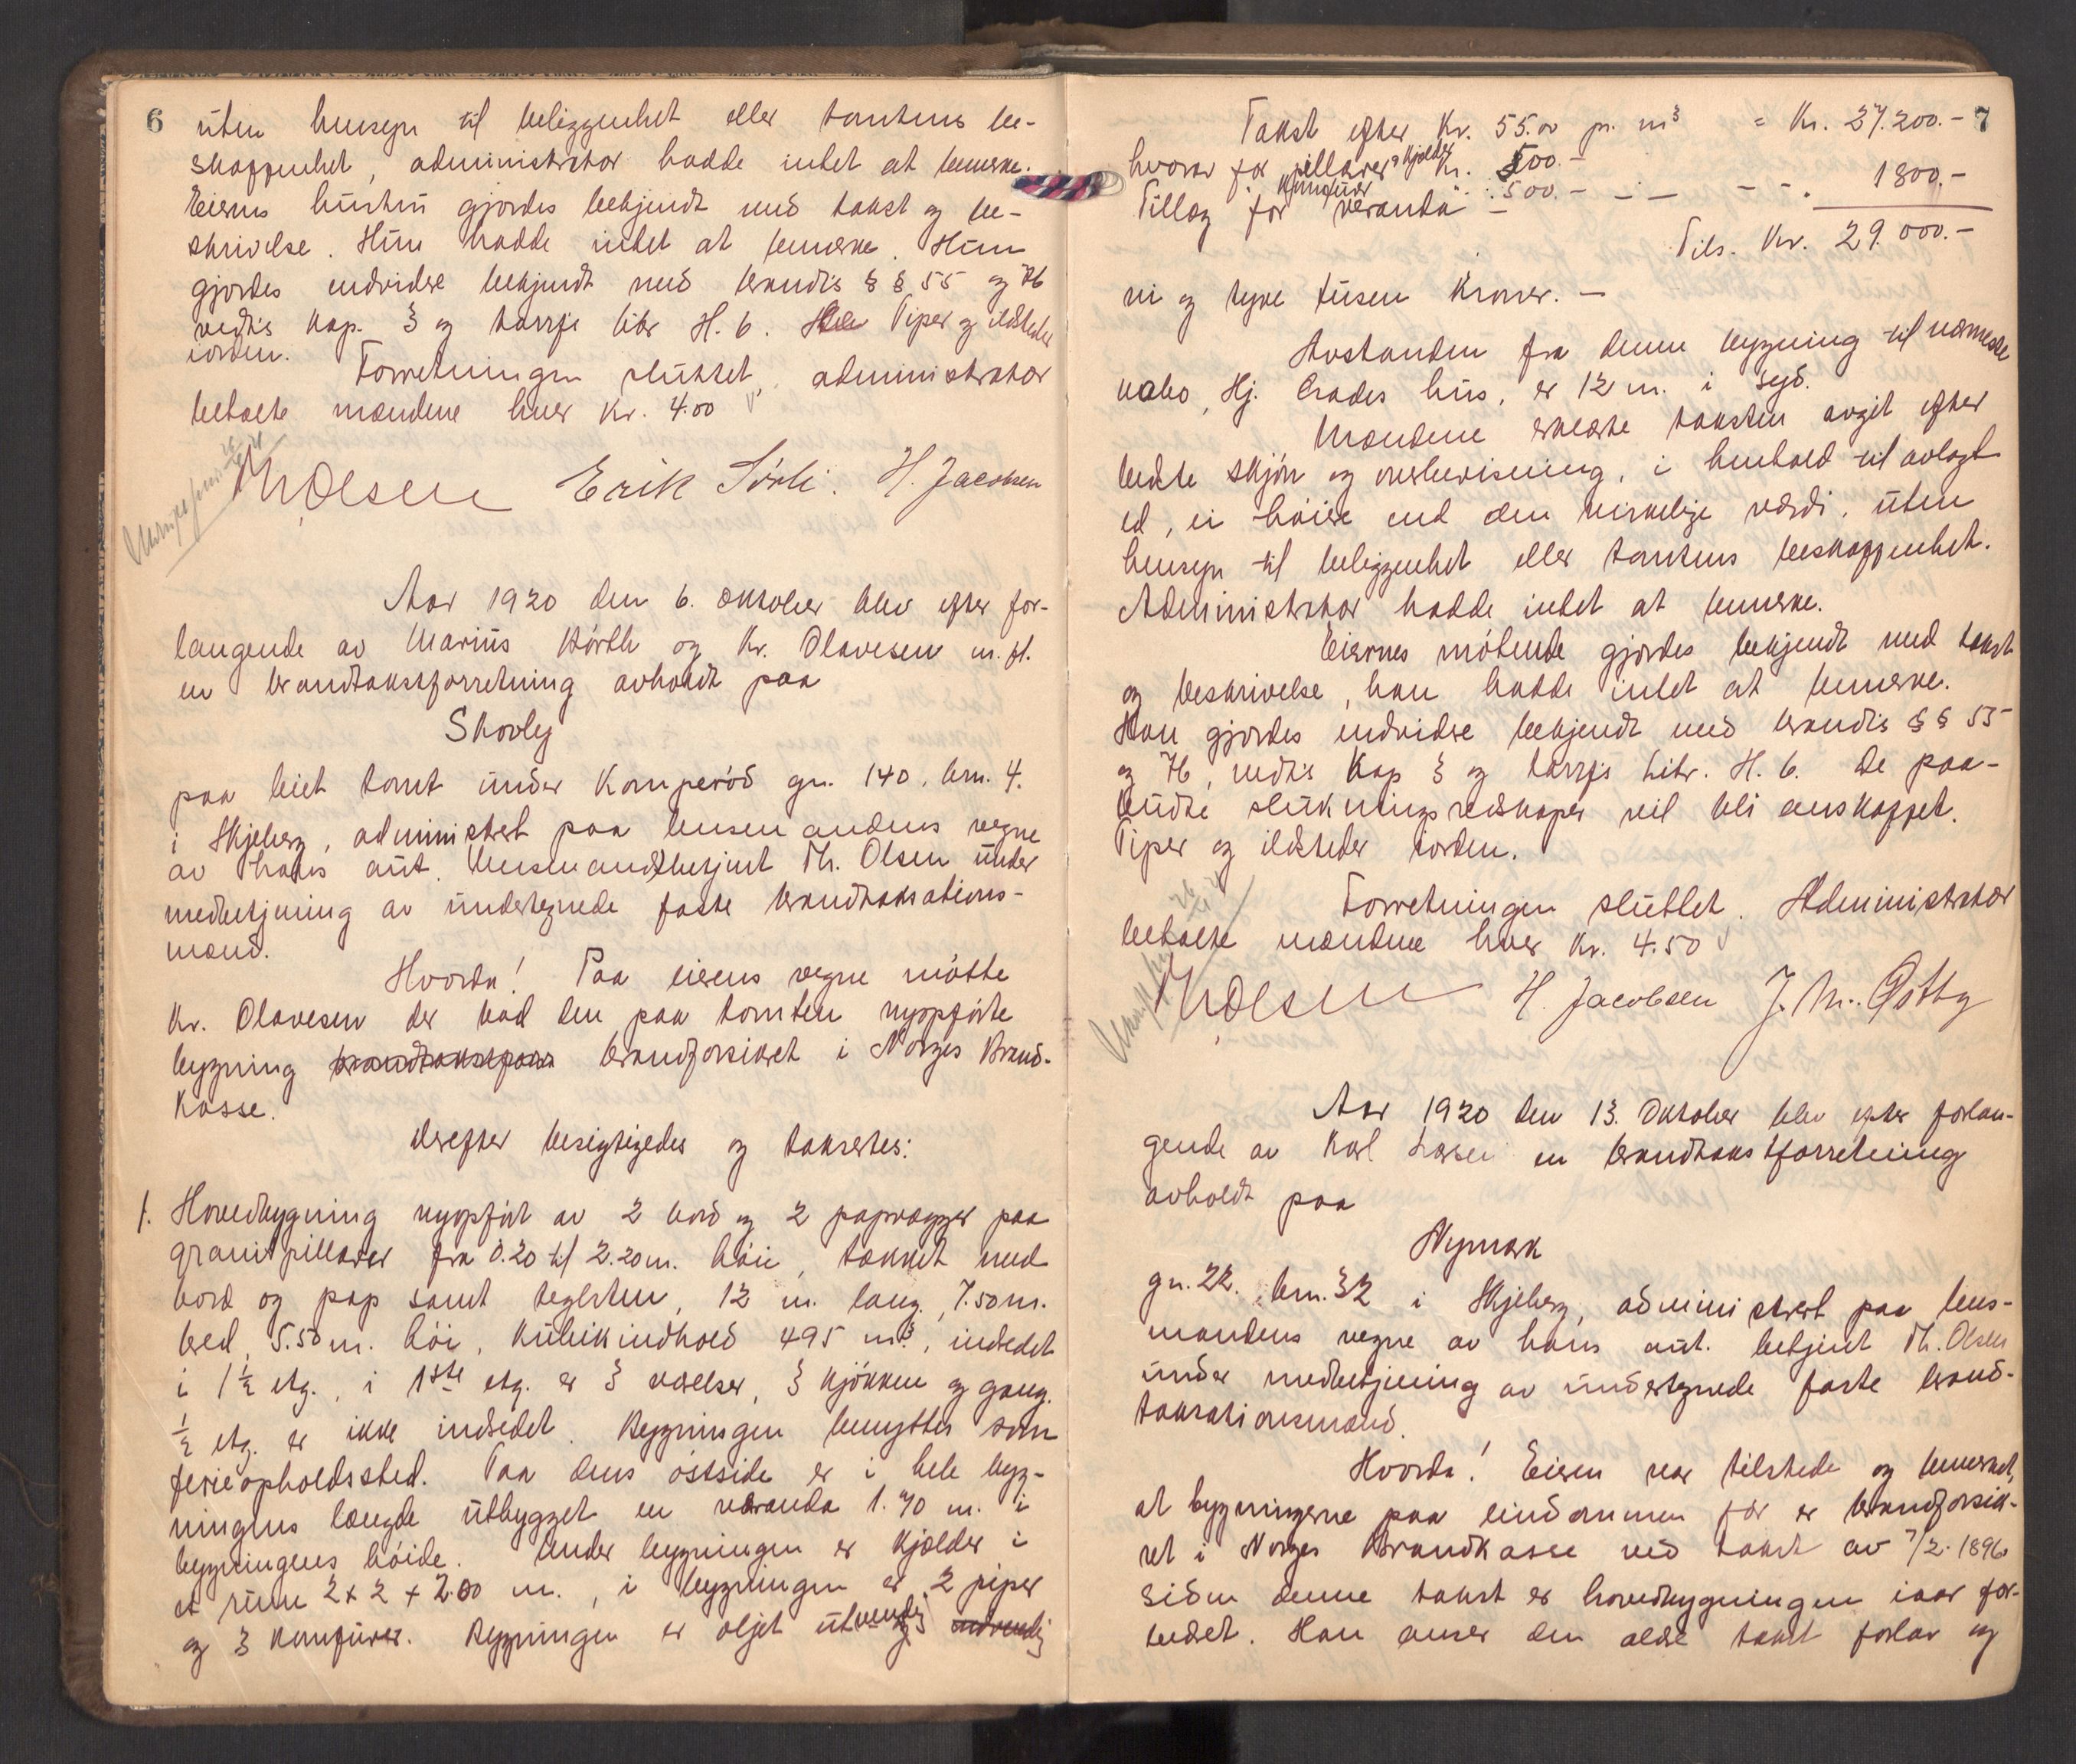 6
uten hensyn til beliggenhet eller tomtens be-
skaffenhet, administrator hadde intet at bemerke.
Eierens hustru gjordes bekjendt med takst og be-
skrivelse. Hun hadde intet at bemerke. Hun
gjordes endvidere bekjendt med brandls §§ 55 og 76
vedts kap. 3 og tarifs litr H. 6. Piper og ildsteder
iorden.
Forretningen sluttet, administrator
betalte mændene hver kr. 4.00
Th. Olsen Erik Sörli. H. Jacobsen
Aar 1920 den 6. oktober blev efter for-
langende av Marius Hörth og Kr. Olavesen m. fl.
en brandtakstforretning avholdt paa
Skovly
paa leiet tomt under Komperöd gn. 140, brn. 4.
i Skjeberg, administrert paa lensmandens vegne
av hans aut. lensmandsbetjent Th. Olsen under
medbetjening av undertegnede faste brandtaksations-
mænd.
Hvorda! Paa eierens vegne mötte
Kr. Olavesen der bad den paa tomten nyopförte
bygning brandtakstforr brandforsikret i Norges Brand-
kasse.
Derefter besigtigedes og taksertes:
1. Hovedbygning nyopfört av 2 bord og 2 papvægger paa
granitpillarer fra 0.20 til 2.20 m. höie, takket med
bord og pap samt teglsten, 12 m. lang, 7.50 m.
bred, 5.50 m. höi, kubikindhold 495 m3, indredet
i 1½ etg., i 1ste etg. er 3 værelser, 3 kjökken og gang.
½ etg. er ikke indredet. Bygningen benyttes som
ferieopholdssted. Paa dens östside er i hele byg-
ningens længde utbygget en veranda 1.70 m. i
bygningens höide. Under bygningen er kjelder i
et rum 2 x 2 x 2.00 m., i bygningen er 2 piper
og 3 komfurer. Bygningen er oljet utvendig indvendig
7
Takst efter Kr. 55.00 pr. m3 = Kr. 27.200.-
hvorav for pillarer og kjelder Kr. 500.-
Tillæg for komfurer veranda - : 500.- - - - - . 1800.-
Tils. Kr. 29.000.-
ni og tyve tusen kroner. -
Avstanden fra denne bygning til nærmeste
nabo, Hj. Crades hus, er 12 m. i syd.
Mændene erklærte taksten avgit efter
bedste skjön og overbevisning, i henhold til avlagt
ed, ei höiere end den virkelige værdi, uten
hensyn til beliggenhet eller tomtens beskaffenhet.
Administrator hadde intet at bemerke.
Eiernes mötende gjordes bekjendt med takst
og beskrivelse, han hadde intet at bemerke.
Han gjordes endvidere bekjendt med brandls §§ 55
og 76, vedts kap 3 og tarifs Litr. H. 6. De paa-
budte slukningsredskaper vil bli anskaffet.
Piper og ildsteder iorden.
Forretningen sluttet. Administrator
betalte mændene hver kr. 4.50
Th. Olsen H. Jacobsen J. M. Östby
Aar 1920 den 13. Oktober blev efter forlan-
gende av Karl Larsen en brandtakstforretning
avholdt paa
Nymark
gn. 22. brn. 32 i Skjeberg, administrert paa lens-
mandens vegne av hans aut. betjent Th. Olsen
under medbetjening av undertegnede faste brand-
taksationsmænd.
Hvorda! Eieren var tilstede og bemerket,
at bygningerne paa eiendommen för er brandforsik-
ret i Norges Brandkasse ved takst av 7/2. 1896
Siden denne takst er hovedbygningen iaar for-
bedret. Han anser den ældre takst forlav og